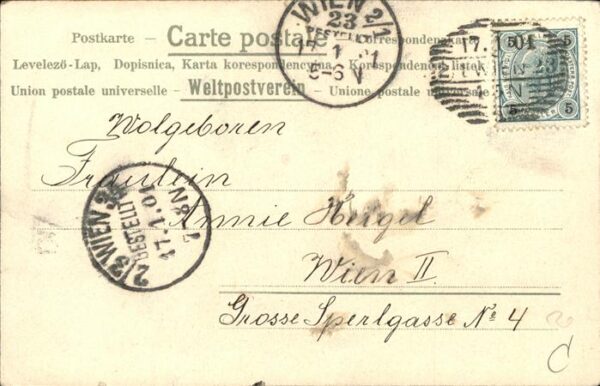 Postkarte – Carte postale – Correspondenzkarte
Levelező-Lap, Dopisnica, Karta korespondencyjna, Korespondenční listek
Union postale universelle – Weltpostverein – Unione postale universale
WIEN 2/1
23
BESTELLT
17.1.01
5-6 N
17. 1. 01
WIEN
23
5 5
5 5
Wolgeboren
Fräulein
Annie Heigel
Wien II.
Grosse Sperlgasse No 4
2/3 WIEN 2/3
BESTELLT
17.1.01
C